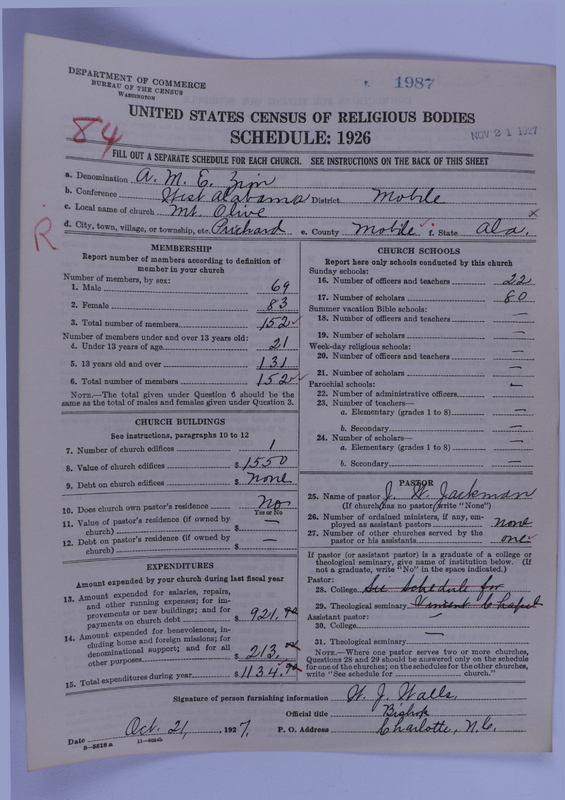 DEPARTMENT OF COMMERCE
BUREAU OF THE CENSUS
WASHINGTON
1987
UNITED STATES CENSUS OF RELIGIOUS BODIES
SCHEDULE: 1926
NOV 21 1927
84
FILL OUT A SEPARATE SCHEDULE FOR EACH CHURCH. SEE INSTRUCTIONS ON THE BACK OF THIS SHEET
a. Denomination A. M. E. Zion
b. Conference West Alabama District Mobile
c. Local name of church Mt. Olive
d. City, town, village, or township, etc. Prichard e. County Mobile f. State Ala. x
R
MEMBERSHIP
Report number of members according to definition of
member in your church
Number of members, by sex:
1. Male 69
2. Female 83
3. Total number of members 152 ✓
Number of members under and over 13 years old:
4. Under 13 years of age 21
5. 13 years old and over 131
6. Total number of members 152 ✓
NOTE.—The total given under Question 6 should be the
same as the total of males and females given under Question 3.
CHURCH BUILDINGS
See instructions, paragraphs 10 to 12
7. Number of church edifices 1
8. Value of church edifices $ 1550
9. Debt on church edifices $ None
10. Does church own pastor's residence No
Yes or No
11. Value of pastor's residence (if owned by
church) $ —
12. Debt on pastor's residence (if owned by
church) $ —
EXPENDITURES
Amount expended by your church during last fiscal year
13. Amount expended for salaries, repairs,
and other running expenses; for im-
provements or new buildings; and for
payments on church debt $ 921.
14. Amount expended for benevolences, in-
cluding home and foreign missions; for
denominational support; and for all
other purposes $ 213.
15. Total expenditures during year $ 1134.
CHURCH SCHOOLS
Report here only schools conducted by this church
Sunday schools:
16. Number of officers and teachers 22
17. Number of scholars 80
Summer vacation Bible schools:
18. Number of officers and teachers —
19. Number of scholars —
Week-day religious schools:
20. Number of officers and teachers —
21. Number of scholars —
Parochial schools:
22. Number of administrative officers —
23. Number of teachers—
a. Elementary (grades 1 to 8) —
b. Secondary —
24. Number of scholars—
a. Elementary (grades 1 to 8) —
b. Secondary —
PASTOR
25. Name of pastor J. W. Jackman
(If church has no pastor, write "None")
26. Number of ordained ministers, if any, em-
ployed as assistant pastors none
27. Number of other churches served by the
pastor or his assistants one
If pastor (or assistant pastor) is a graduate of a college or
theological seminary, give name of institution below. (If
not a graduate, write "No" in the space indicated.)
Pastor:
28. College See schedule for
29. Theological seminary Vincent Chapel
Assistant pastor: —
30. College
31. Theological seminary —
NOTE.—Where one pastor serves two or more churches,
Questions 28 and 29 should be answered only on the schedule
for one of the churches; on the schedules for the other churches,
write "See schedule for church."
Signature of person furnishing information W. J. Walls,
Official title Bishop
Date Oct. 21, 1927. P. O. Address Charlotte, N.C.
8-5518 a